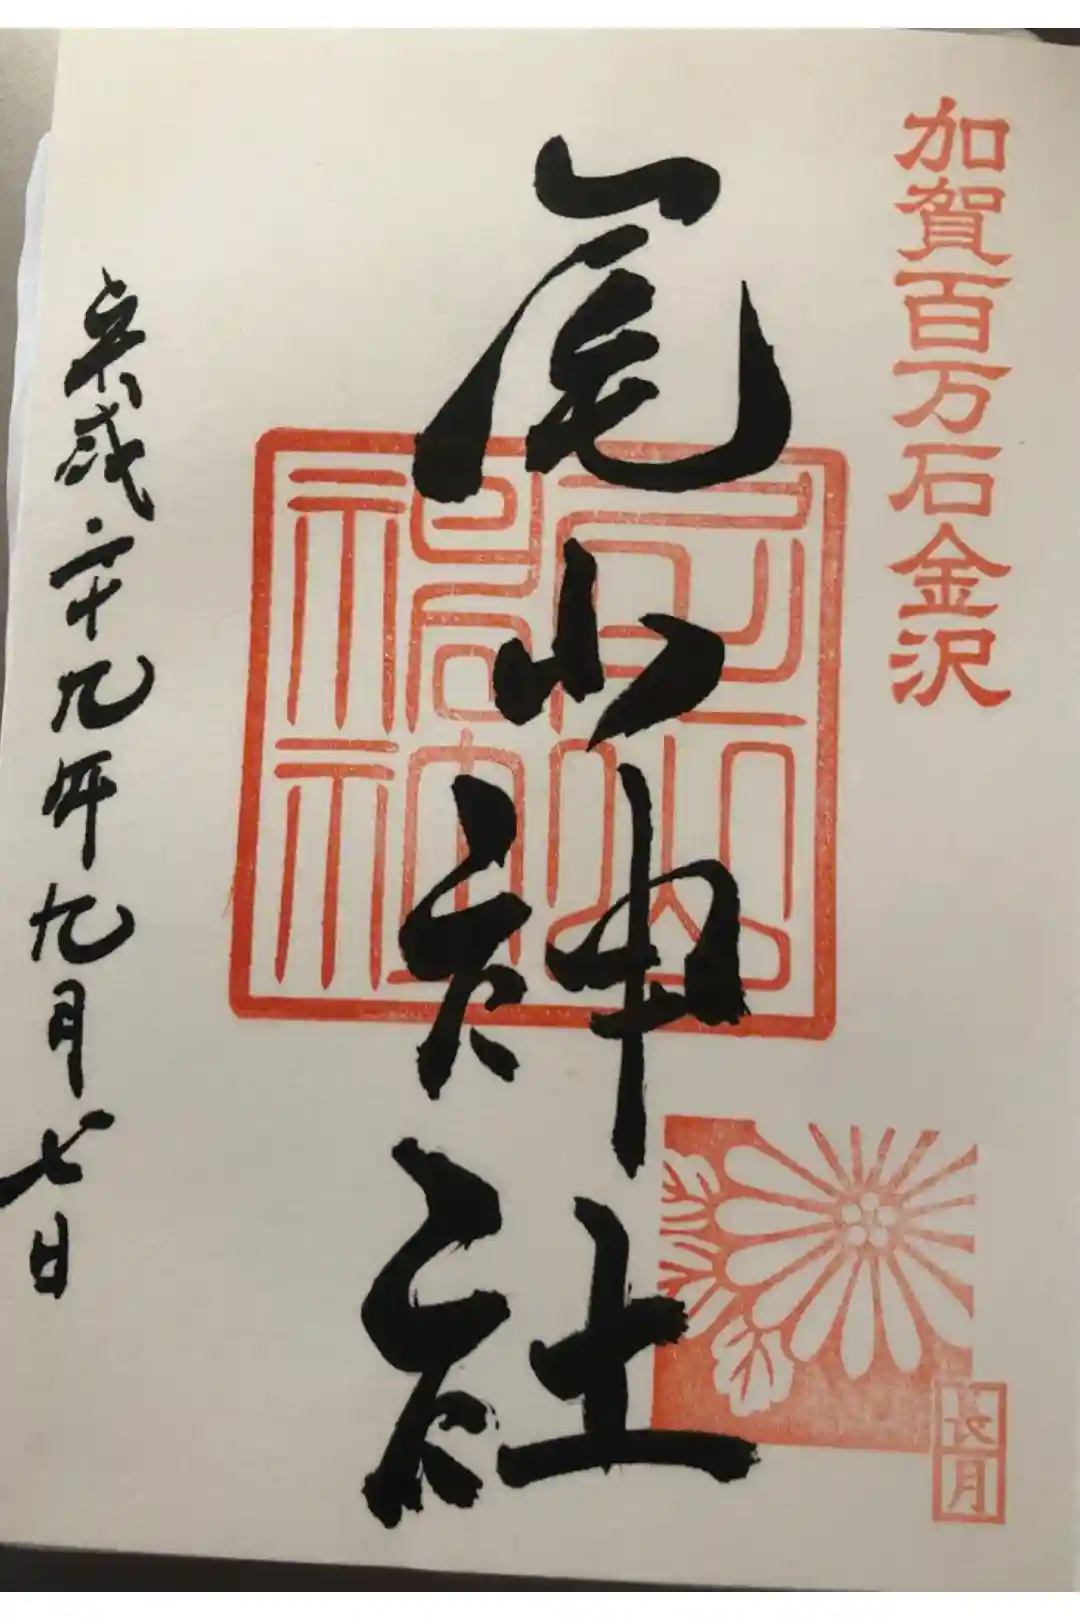 加賀百万石金沢
尾山神社
尾山神社
長月
平成二十九年九月七日